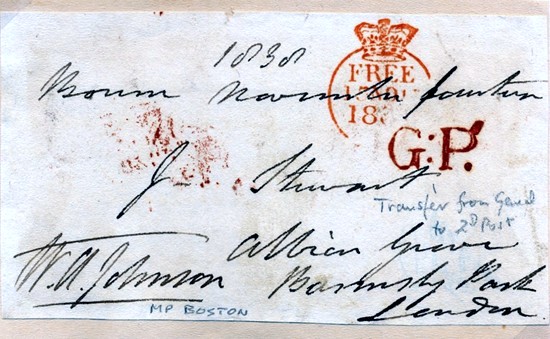 1838
FREE
18
Bourn November fourteen
G:P.
J Stewart
Transfer from General
to 2d Post
Albion Grove
W.A. Johnson Barnsby Park
MP BOSTON London